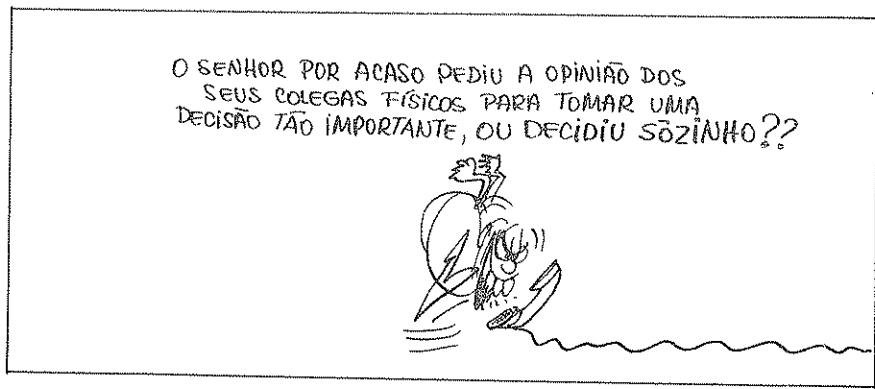 O SENHOR POR ACASO PEDIU A OPINIÃO DOS
SEUS COLEGAS FÍSICOS PARA TOMAR UMA
DECISÃO TÃO IMPORTANTE, OU DECIDIU SÕZINHO??